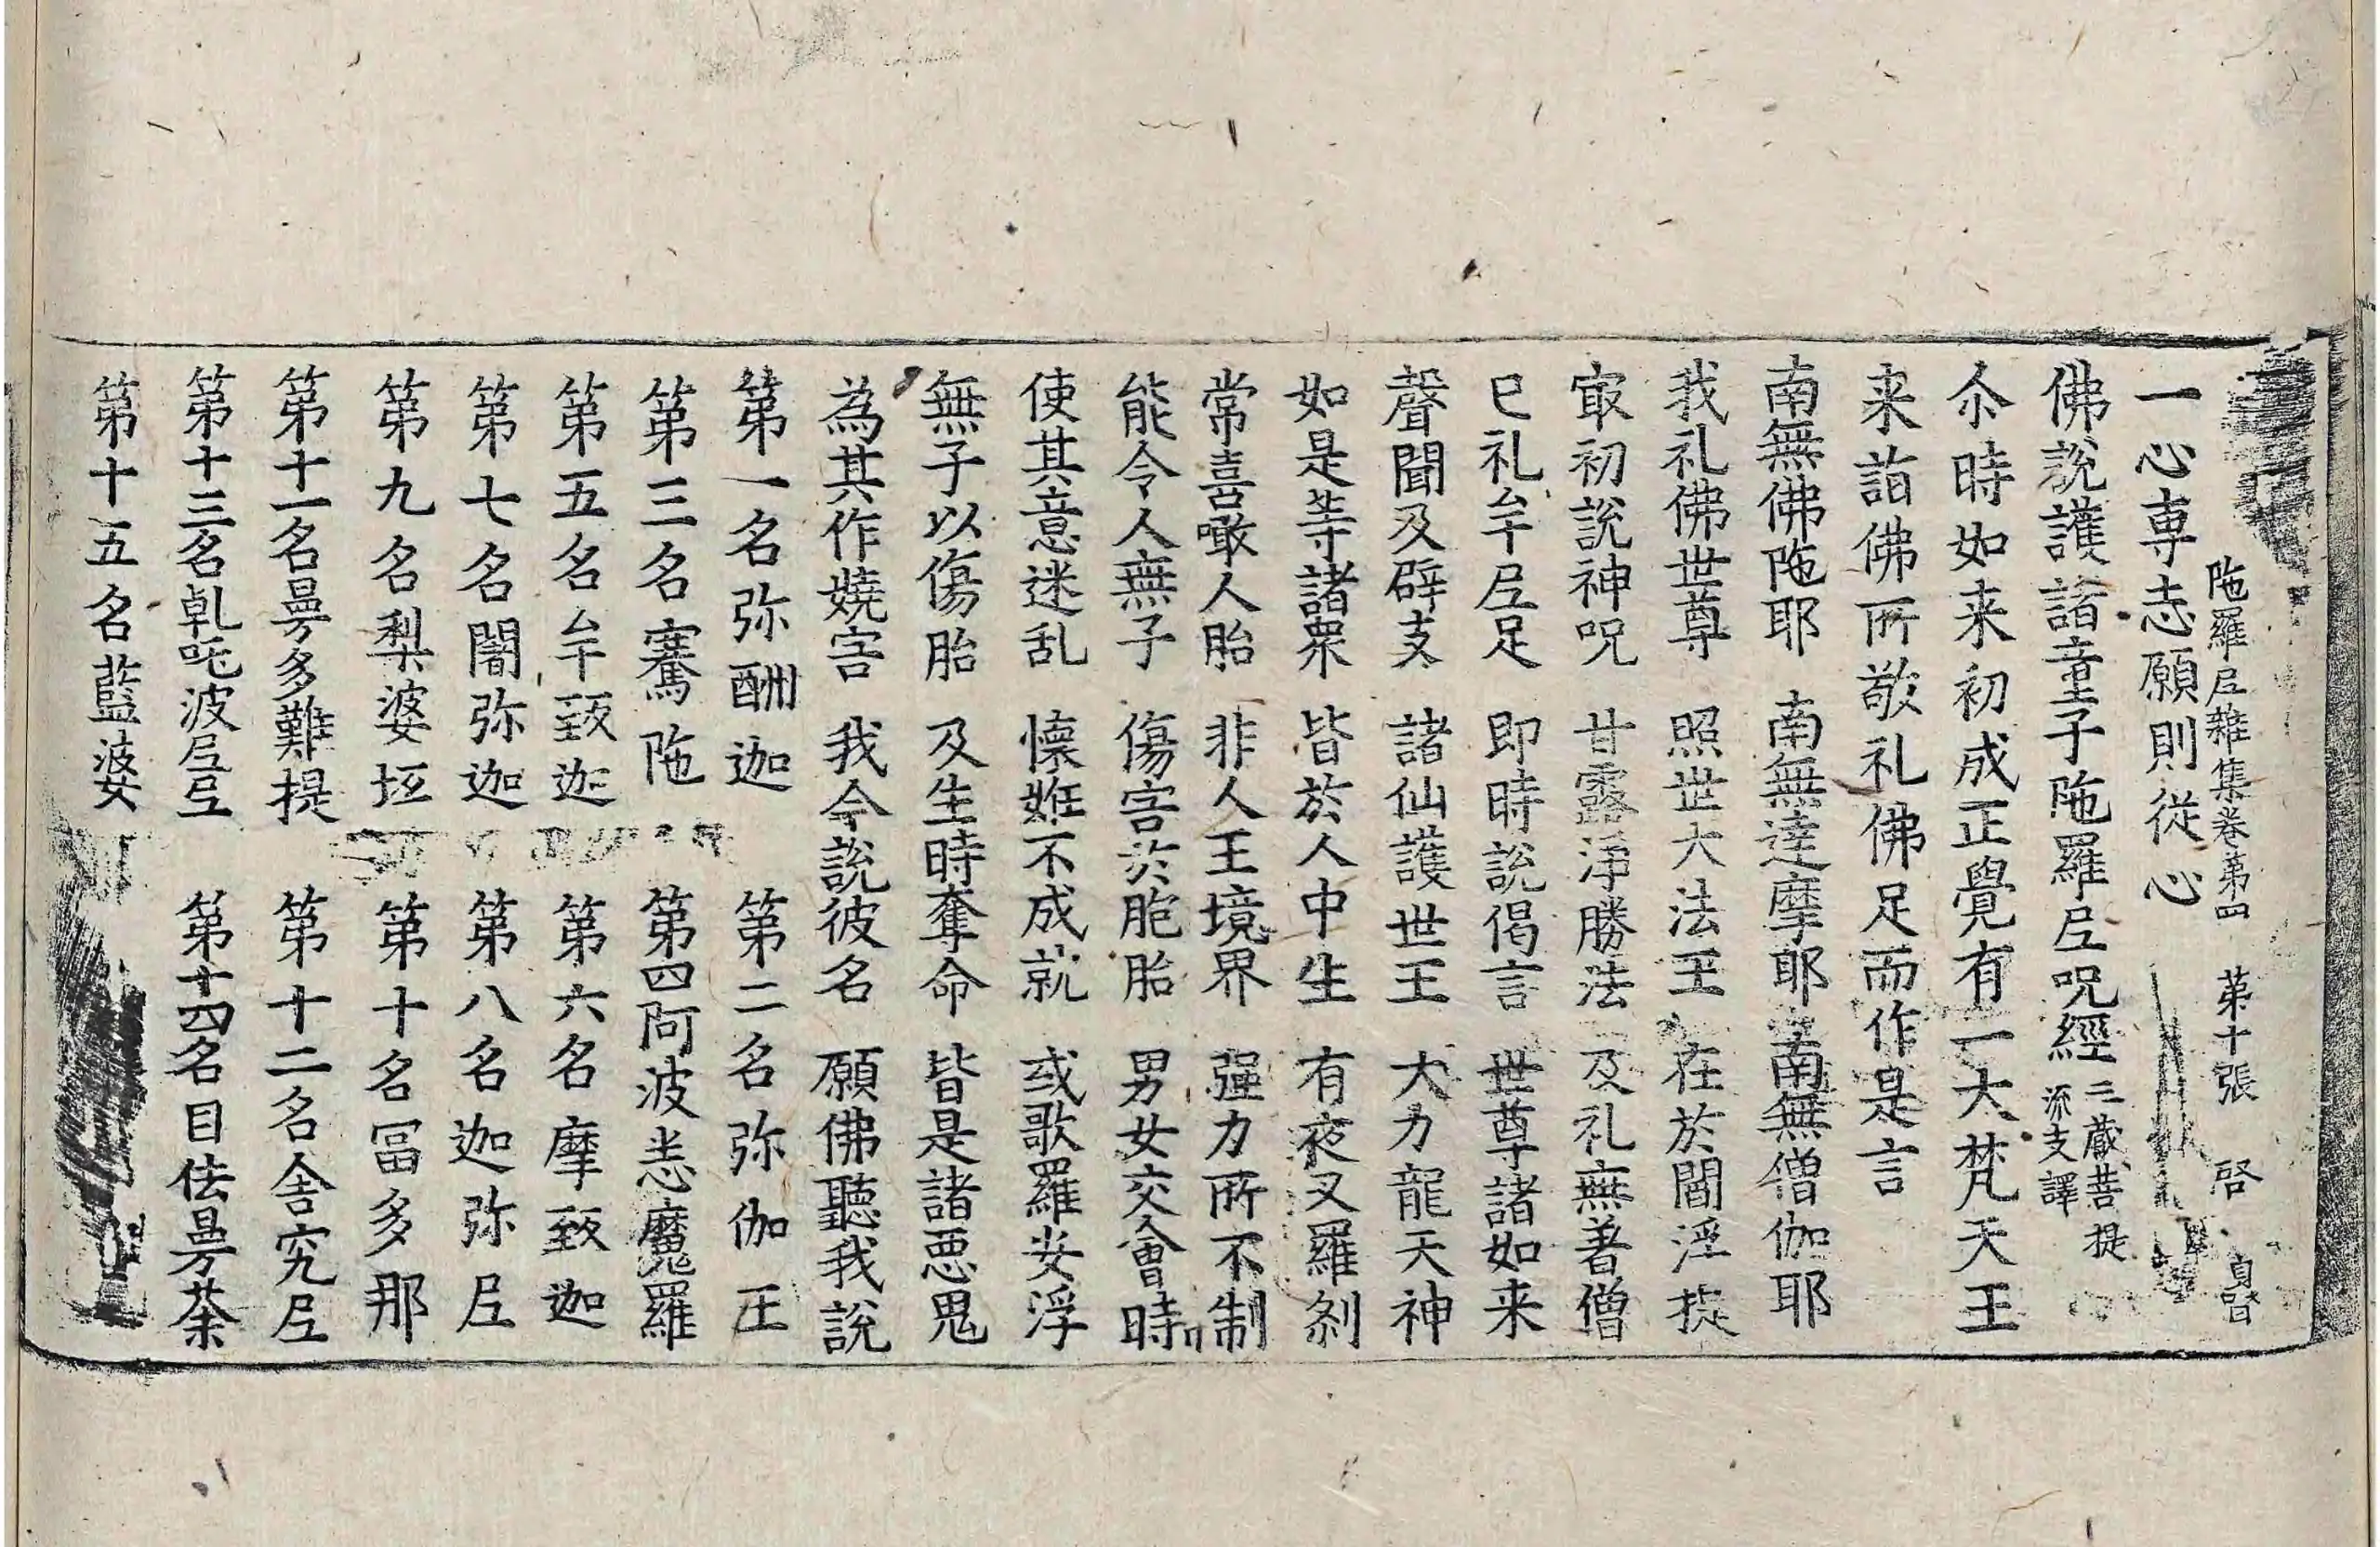 陁羅尼雜集卷第四 第十張 啓
一心専志願則従心
佛說護諸童子陁羅尼呪經 三蔵菩提流支譯
尒時如来初成正覺有一大梵天王
来詣佛所敬礼佛足而作是言
南無佛陁耶 南無達摩耶 南無僧伽耶
我礼佛世尊 照世大法王 在於閻浮提
㝡初說神呪 甘露淨勝法 及礼無著僧
已礼牟尼足 即時說偈言 世尊諸如来
聲聞及辟支 諸仙護世王 大力龍天神
如是等諸衆 皆於人中生 有夜叉羅刹
常喜噉人胎 非人王境界 強力所不制
能令人無子 傷害於胞胎 男女交會時
使其意迷乱 懐姙不成就 或歌羅安浮
無子以傷胎 及生時奪命 皆是諸悪鬼
為其作嬈害 我今說彼名 願佛聽我說
第一名弥酬迦 第二名弥伽王
第三名騫陁 第四阿波悉魔羅
第五名牟致迦 第六名摩致迦
第七名闍弥迦 第八名迦弥尼
第九名梨婆坻 第十名冨多那
第十一名曼多難提 第十二名舎究尼
第十三名乹吒波尼 第十四名目佉曼荼
第十五名藍婆